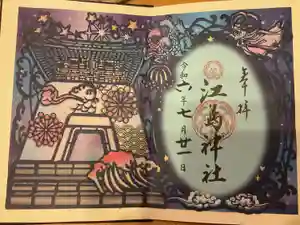 奉拝
江島神社
令和六年七月廿一日